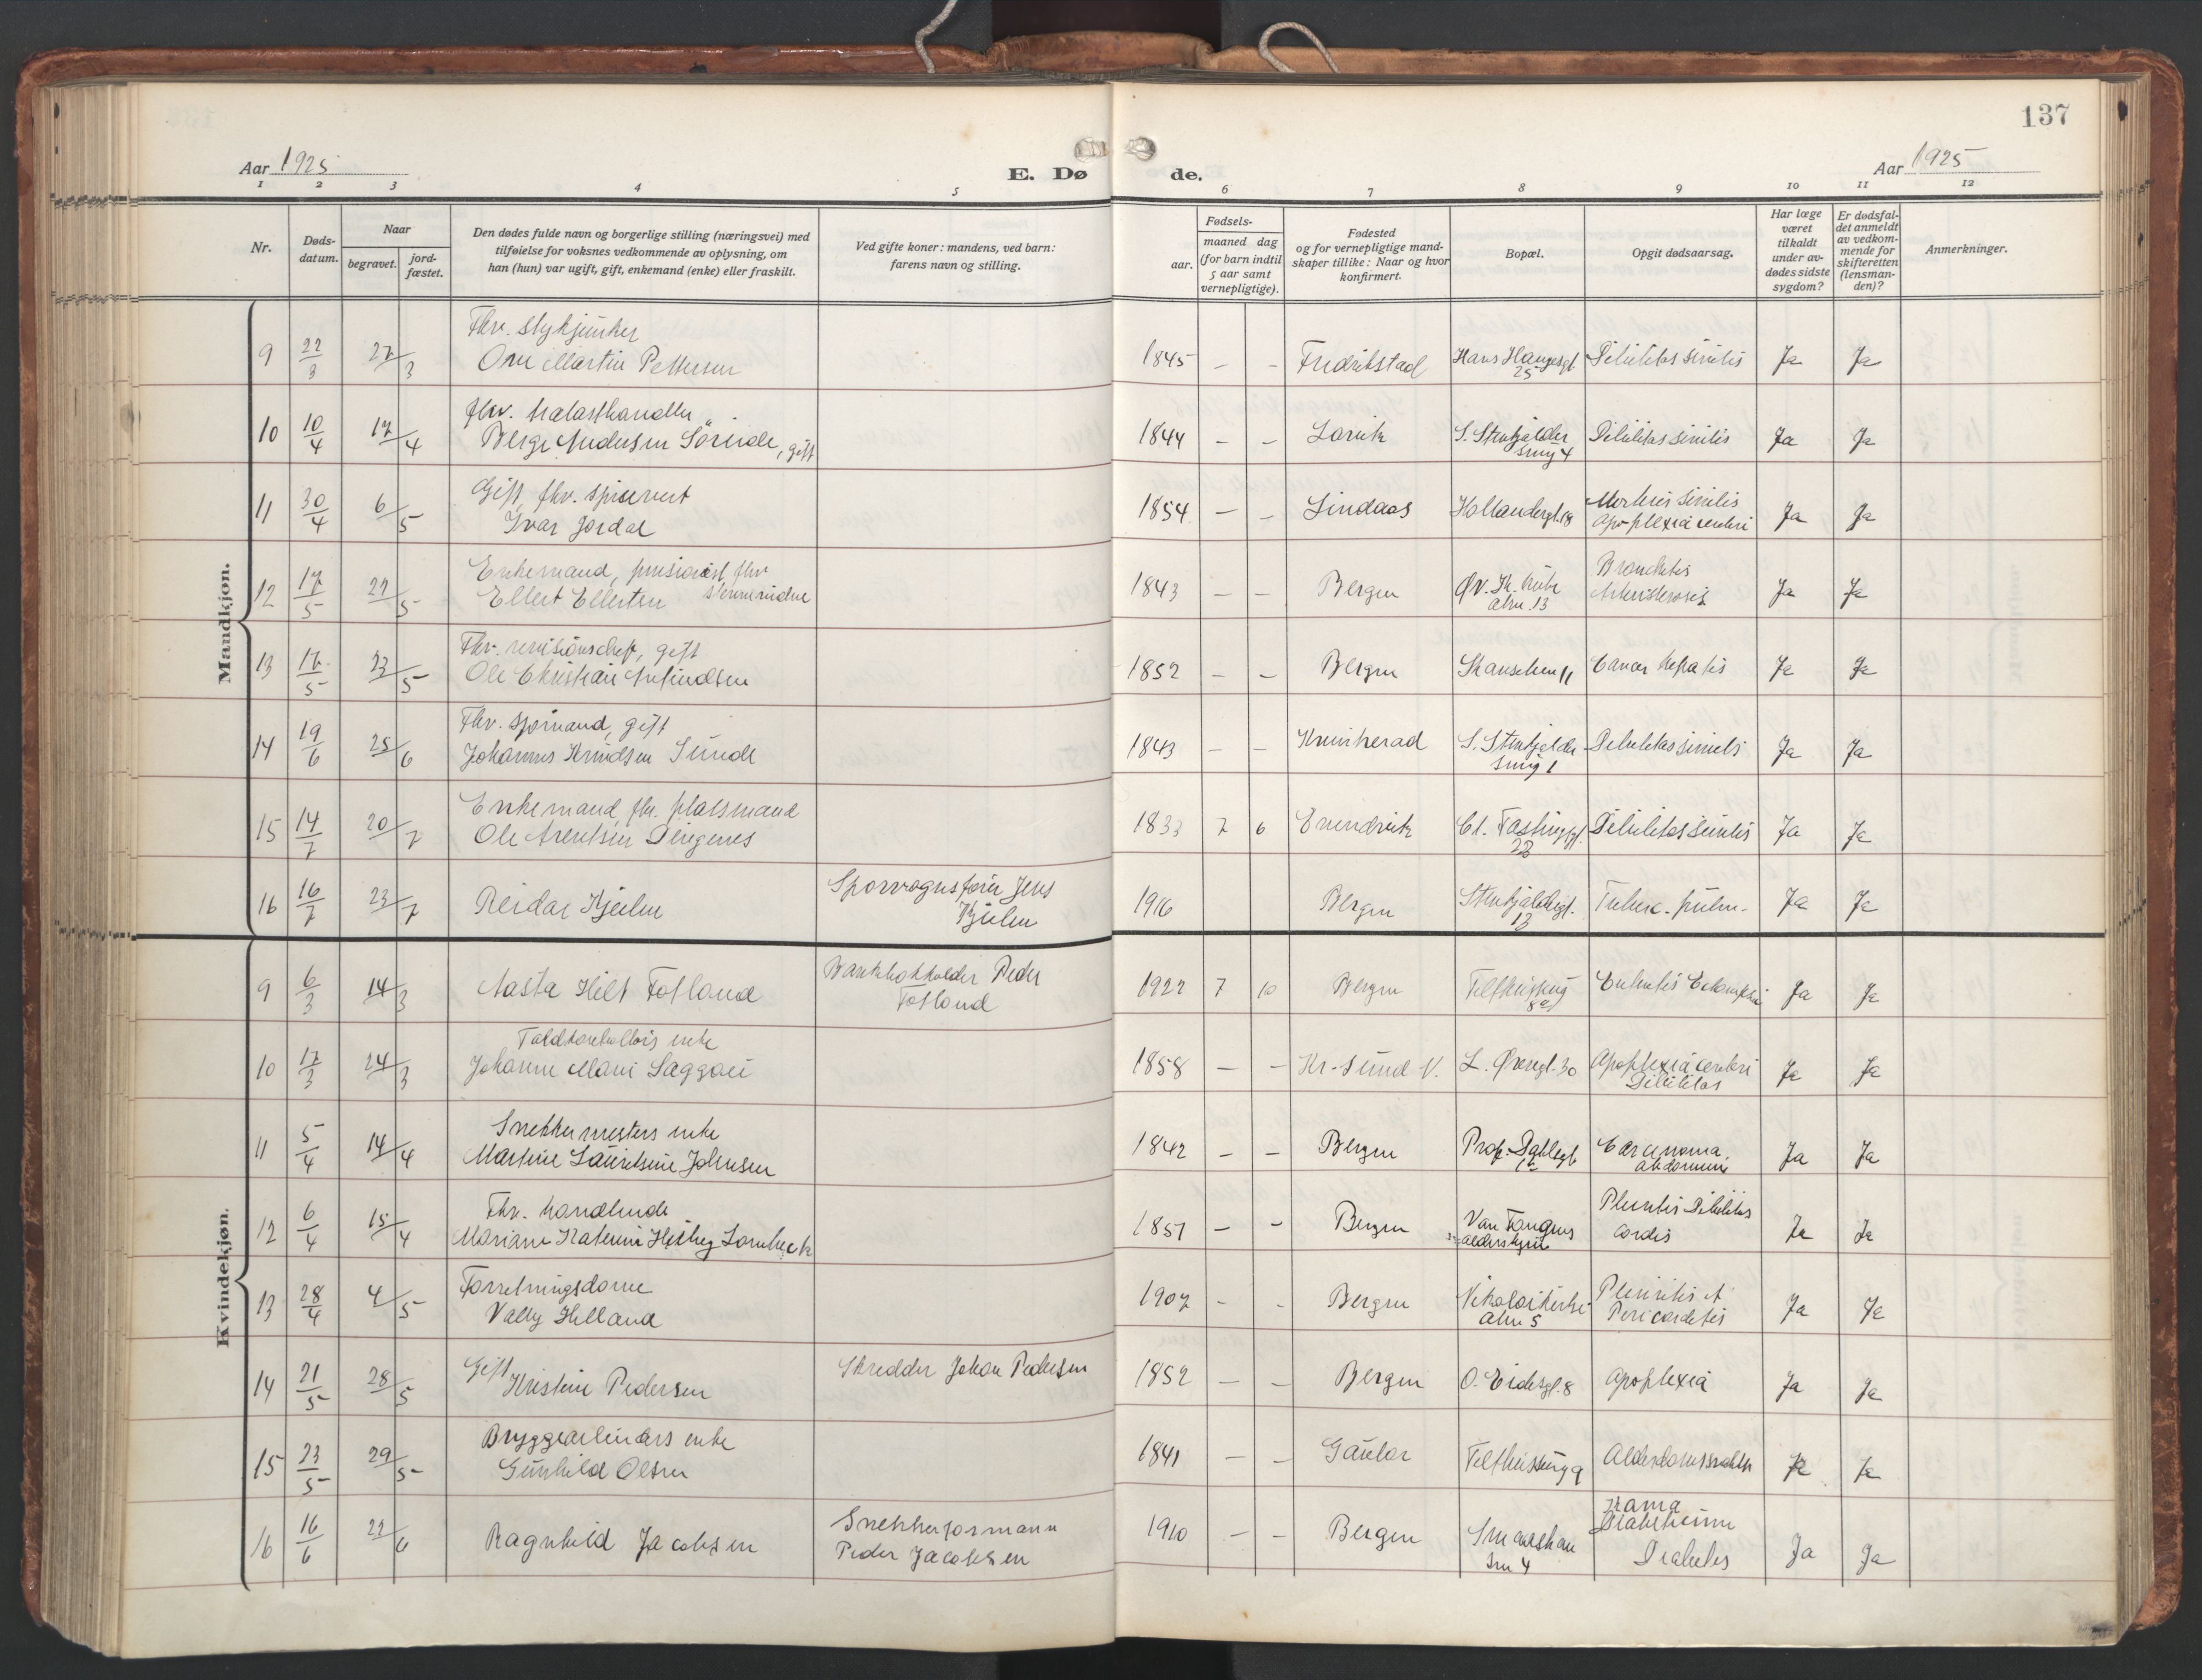 137
Aar 1925
E. Dø
de.
Aar 1925
1 2 3 4 5 6 7 8 9 10 11 12
Nr.
Døds-
datum.
Naar
begravet.
jord-
fæstet.
Den dødes fulde navn og borgerlige stilling (næringsvei) med
tilføielse for voksnes vedkommende av oplysning, om
han (hun) var ugift, gift, enkemand (enke) eller fraskilt.
Ved gifte koner: mandens, ved barn:
farens navn og stilling.
Fødsels-
aar.
maaned dag
(for barn indtil
5 aar samt
vernepligtige).
Fødested
og for vernepligtige mand-
skaper tillike: Naar og hvor
konfirmert.
Bopæl.
Opgit dødsaarsag.
Har læge
været
tilkaldt
under av-
dødes sidste
sygdom?
Er dødsfal-
det anmeldt
av vedkom-
mende for
skifteretten
(lensman-
den)?
Anmerkninger.
Mandkjøn.
Fhv. stykjunker
9 22/3 27/3 Ove Martin Pettersen 1845 – – Fredrikstad Hans Haugesgt. 25 Debilitas senilis Ja Ja
fhv. trælasthandler
10 10/4 17/4 Berge Andersen Söreide, gift 1844 – – Larvik S. Stenkjelder smug 4 Debilitas senilis Ja Ja
Gift, fhv.
11 30/4 6/5 Ivar Jordal 1854 – – Lindaas Hollendergt. 18 senilis
Apoplexia cerebri Ja Ja
Enkemand, pensionist, fhv
12 17/5 27/5 Ellert Ellertsen 1843 – – Bergen Øv. Kr. kirke alm. 13 Bronchitis
Arteriosclerosis Ja Ja
Fhv. revisionschef, gift
13 17/5 23/5 Ole Christian Arfindsen 1852 – – Bergen Skanselien 11 Cancer hepatis Ja Ja
Fhv. sjømand, gift
14 19/6 25/6 Johannes Knudsen Sunde 1843 – – Kvinherad S. Stenkjelder smug 1 Debilitas senilis Ja Ja
Enkemand, fhv. plassmand
15 14/7 20/7 Ole Arentsen Dingenes 1833 7 6 Evendvik Cl. Fastingsgt. Debilitas senilis Ja Ja
16 16/7 23/7 Reidar Kjeilen Sporvognsfører Jens
Kjeilen 1916 Bergen Stenkjeldergt. 13 Tuberc. pulm. Ja Ja
Kvindekjøn.
9 6/3 14/3 Aasta Hilt Totland Bankbokholder Peder
Totland 1922 7 10 Bergen Telthussmug 8a Enteritis Eclampsia Ja Ja
Toldkontrollörs enke
10 17/3 24/3 Johanne Marie Saggau 1858 – – Kr.sund N. L. Øvregt. 30 Apoplexia cerebri
Debilitas Ja Ja
Snekkermesters enke
11 5/4 14/4 Martine Lauritsine Johnsen 1842 – – Bergen Prof. Dahlsgt. Carcinoma
abdominis Ja Ja
Fhv. handlende
12 6/4 15/4 Mariane Katerine Heiberg Lambech 1851 – – Bergen Van Tangens
alderskjem Pleuritis Debilitas
cordis Ja Ja
Forretningsdame
13 28/4 4/5 Vally Helland 1907 - - Bergen Nikolaikirke
alm 5 Pleuritis et
Pericarditis Ja Ja
14 21/5 28/5 Gift Kristine Pedersen Skredder Johan Pedersen 1852 – – Bergen O. Eidesgt. 8 Apoplexia Ja Ja
Bryggearbeiders enke
15 23/5 29/5 Gunhild Olsen 1841 – – Gaular Telthussmug 9 Alderdomssvakhet Ja Ja
16 16/6 22/6 Ragnhild Jacobsen Snekkerformann
Peder Jacobsen 1910 – – Bergen Smaaskan
sm 4 Diabetes Ja Ja